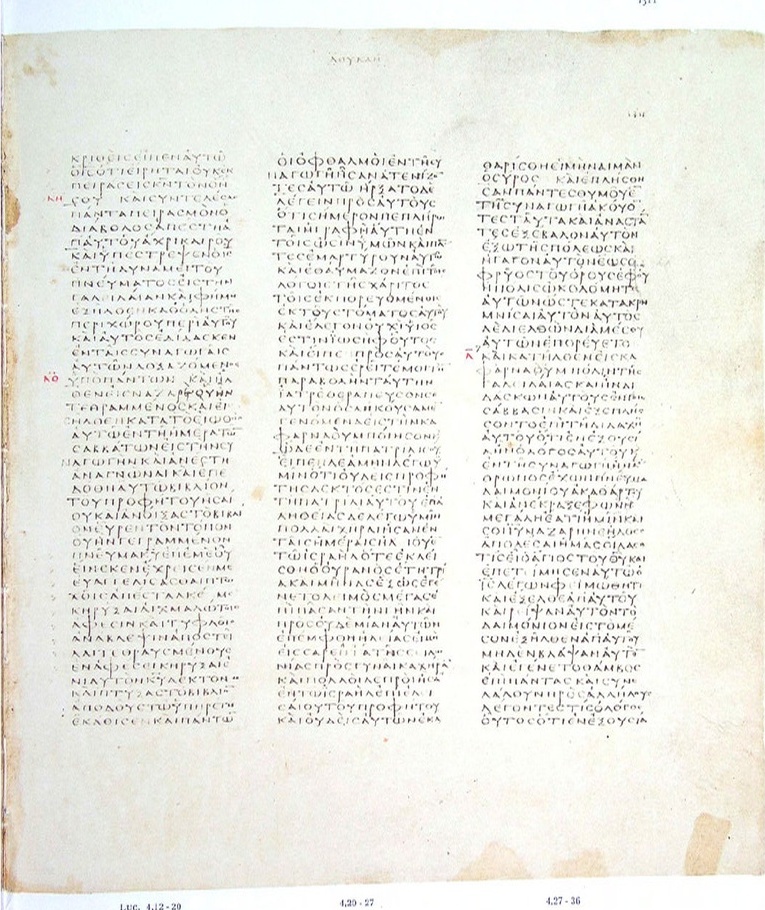 ΛΟΥΚΑΝ
ΚΡΙΘΕΙΣΕΙΠΕΝΑΥΤΩ
ΟΙΣΟΤΙΕΙΡΗΤΑΙΟΥΚΕΚ
ΠΕΙΡΑΣΕΙΣΚΝΤΟΝΘΝ
ΚΗ
ΣΟΥ ΚΑΙΣΥΝΤΕΛΕΣΑΣ
ΠΑΝΤΑΠΕΙΡΑΣΜΟΝΟ
ΔΙΑΒΟΛΟΣΑΠΕΣΤΗΑ
ΠΑΥΤΟΥΑΧΡΙΚΑΙΡΟΥ
ΚΑΙΥΠΕΣΤΡΕΨΕΝΟΙΣ
ΕΝΤΗΔΥΝΑΜΕΙΤΟΥ
ΠΝΕΥΜΑΤΟΣΕΙΣΤΗΝ
ΓΑΛΕΙΛΑΙΑΝΚΑΙΦΗΜΗ
ΕΞΗΛΘΕΝΚΑΘΟΛΗΣΤΗΣ
ΠΕΡΙΧΩΡΟΥΠΕΡΙΑΥΤΟΥ
ΚΑΙΑΥΤΟΣΕΔΙΔΑΣΚΕΝ
ΕΝΤΑΙΣΣΥΝΑΓΩΓΑΙΣ
ΑΥΤΩΝΔΟΞΑΖΟΜΕΝΟΣ
ΥΠΟΠΑΝΤΩΝ ΚΑΙΗΛ
ΘΕΝΕΙΣΝΑΖΑΡΑΟΥΗΝ
ΤΕΘΡΑΜΜΕΝΟΣΚΑΙΕΙΣ
ΗΛΘΕΝΚΑΤΑΤΟΕΙΩΘΟΣ
ΑΥΤΩΕΝΤΗΗΜΕΡΑΤΩ
ΣΑΒΒΑΤΩΝΕΙΣΤΗΝΣΥ
ΝΑΓΩΓΗΝΚΑΙΑΝΕΣΤΗ
ΑΝΑΓΝΩΝΑΙΚΑΙΕΠΕ
ΔΟΘΗΑΥΤΩΒΙΒΛΙΟΝ
ΤΟΥΠΡΟΦΗΤΟΥΗΣΑΙ
ΟΥΚΑΙΑΝΟΙΞΑΣΤΟΒΙΒΛΙ
ΟΝΕΥΡΕΝΤΟΝΤΟΠΟΝ
ΟΥΗΝΓΕΓΡΑΜΜΕΝΟΝ
ΠΝΕΥΜΑΚΥΕΠΕΜΕΟΥ
ΕΙΝΕΚΕΝΕΧΡΕΙΣΕΝΜΕ
ΕΥΑΓΓΕΛΙΣΑΣΘΑΙΠΤΩ
ΧΟΙΣΑΠΕΣΤΑΛΚΕ ΜΕ
ΚΗΡΥΞΑΙΑΙΧΜΑΛΩΤΟΙΣ
ΑΦΕΣΙΝΚΑΙΤΥΦΛΟΙΣ
ΑΝΑΒΛΕΨΙΝΑΠΟΣΤΕΙ
ΛΑΙΤΕΘΡΑΥΣΜΕΝΟΥΣ
ΕΝΑΦΕΣΕΙΚΗΡΥΞΑΙΕ
ΝΙΑΥΤΟΝΚΥΔΕΚΤΟΝ
ΚΑΙΠΤΥΞΑΣΤΟΒΙΒΛΙΟ
ΑΠΟΔΟΥΣΤΩΥΠΗΡΕΤΗ
ΕΚΑΘΙΣΕΝΚΑΙΠΑΝΤΩ
ΟΙΟΦΘΑΛΜΟΙΕΝΤΗΣΥ
ΝΑΓΩΓΗΗΣΑΝΑΤΕΝΙΖΟ
ΤΕΣΑΥΤΩ ΗΡΞΑΤΟΔΕ
ΛΕΓΕΙΝΠΡΟΣΑΥΤΟΥΣ
ΟΤΙΣΗΜΕΡΟΝΠΕΠΛΗΡΩ
ΤΑΙΗΓΡΑΦΗΑΥΤΗΕΝ
ΤΟΙΣΩΣΙΝΥΜΩΝΚΑΙΠΑ
ΤΕΣΕΜΑΡΤΥΡΟΥΝΑΥΤΩ
ΚΑΙΕΘΑΥΜΑΖΟΝΕΠΙΤΟΙΣ
ΛΟΓΟΙΣΤΗΣΧΑΡΙΤΟΣ
ΤΟΙΣΕΚΠΟΡΕΥΟΜΕΝΟΙΣ
ΕΚΤΟΥΣΤΟΜΑΤΟΣΑΥΤΟΥ
ΚΑΙΕΛΕΓΟΝΟΥΧΙΥΙΟΣ
ΕΣΤΙΝΙΩΣΗΦΟΥΤΟΣ
ΚΑΙΕΙΠΕ ΠΡΟΣΑΥΤΟΥΣ
ΠΑΝΤΩΣΕΡΕΙΤΕΜΟΙΤΗ
ΠΑΡΑΒΟΛΗΝΤΑΥΤΗΝ
ΙΑΤΡΕΘΕΡΑΠΕΥΣΟΝΣΕ
ΑΥΤΟΝΟΣΑΗΚΟΥΣΑΜΕ
ΓΕΝΟΜΕΝΑΕΙΣΤΗΝΚΑ
ΦΑΡΝΑΟΥΜΠΟΙΗΣΟΝΚΑΙ
ΩΔΕΕΝΤΗΠΑΤΡΙΔΙΣΟΥ
ΕΙΠΕΝΔΕΑΜΗΝΛΕΓΩΥ
ΜΙΝΟΤΙΟΥΔΕΙΣΠΡΟΦΗ
ΤΗΣΔΕΚΤΟΣΕΣΤΙΝΕΝ
ΤΗΠΑΤΡΙΔΙΑΥΤΟΥΕΠΑ
ΛΗΘΕΙΑΣΔΕΛΕΓΩΥΜΙΝ
ΠΟΛΛΑΙΧΗΡΑΙΗΣΑΝΕΝ
ΤΑΙΣΗΜΕΡΑΙΣΗΛΙΟΥΕ
ΤΩΙΣΡΑΗΛΟΤΕΕΚΛΕΙ
ΣΘΗΟΟΥΡΑΝΟΣΕΤΗΤΡΙ
ΑΚΑΙΜΗΝΑΣΕΞΩΣΕΓΕ
ΝΕΤΟΛΕΙΜΟΣΜΕΓΑΣΕ
ΠΙΠΑΣΑΝΤΗΝΓΗΝΚΑΙ
ΠΡΟΣΟΥΔΕΜΙΑΝΑΥΤΩΝ
ΕΠΕΜΦΘΗΗΛΕΙΑΣΕΙΜΗ
ΕΙΣΣΑΡΕΠΤΑΤΗΣΣΙΔΩ
ΝΙΑΣΠΡΟΣΓΥΝΑΙΚΑΧΗΡΑ
ΚΑΙΠΟΛΛΟΙΛΕΠΡΟΙΗΣΑ
ΕΝΤΩΙΣΡΑΗΛΕΠΙΕΛΕΙ
ΣΑΙΟΥΤΟΥΠΡΟΦΗΤΟΥ
ΚΑΙΟΥΔΕΙΣΑΥΤΩΝΕΚΑ
ΘΑΡΙΣΘΗΕΙΜΗΝΑΙΜΑΝ
ΟΣΥΡΟΣ ΚΑΙΕΠΛΗΣΘΗ
ΣΑΝΠΑΝΤΕΣΘΥΜΟΥΕ
ΤΗΣΥΝΑΓΩΓΗΑΚΟΥΟ
ΤΕΣΤΑΥΤΑΚΑΙΑΝΑΣΤΑ
ΤΕΣΕΞΕΒΑΛΟΝΑΥΤΟΝ
ΕΞΩΤΗΣΠΟΛΕΩΣΚΑΙ
ΗΓΑΓΟΝΑΥΤΟΝΕΩΣΟ
ΦΡΥΟΣΤΟΥΟΡΟΥΣΕΦΟΥ
ΗΠΟΛΙΣΩΚΟΔΟΜΗΤΟ
ΑΥΤΩΝΩΣΤΕΚΑΤΑΚΡΗ
ΜΝΙΣΑΙΑΥΤΟΝΑΥΤΟΣ
ΔΕΔΙΕΛΘΩΝΔΙΑΜΕΣΟΥ
ΑΥΤΩΝΕΠΟΡΕΥΕΤΟ
Λ
ΚΑΙΚΑΤΗΛΘΕΝΕΙΣΚΑ
ΦΑΡΝΑΟΥΜ ΠΟΛΙΝΤΗΣ
ΓΑΛΕΙΛΑΙΑΣΚΑΙΗΝΔΙ
ΔΑΣΚΩΝΑΥΤΟΥΣΕΝΤΟΙΣ
ΣΑΒΒΑΣΙΝΚΑΙΕΞΕΠΛΗΣ
ΣΟΝΤΟΕΠΙΤΗΔΙΔΑΧΗ
ΑΥΤΟΥΟΤΙΕΝΕΞΟΥΣΙΑ
ΗΝΟΛΟΓΟΣΑΥΤΟΥΚΑΙ
ΕΝΤΗΣΥΝΑΓΩΓΗΗΝΑΝ
ΘΡΩΠΟΣΕΧΩΝΠΝΕΥΜΑ
ΔΑΙΜΟΝΙΟΥΑΚΑΘΑΡΤΟΥ
ΚΑΙΑΝΕΚΡΑΞΕΦΩΝΗ
ΜΕΓΑΛΗΕΑΤΙΗΜΙΝΚΑΙ
ΣΟΙΙΥΝΑΖΑΡΗΝΕΗΛΘΕΣ
ΑΠΟΛΕΣΑΙΗΜΑΣΟΙΔΑΣΕ
ΤΙΣΕΙΟΑΓΙΟΣΤΟΥΘΥΚΑΙ
ΕΠΕΤΙΜΗΣΕΝΑΥΤΩΟ
ΙΣΛΕΓΩΝΦΕΙΜΩΘΗΤΙ
ΚΑΙΕΞΕΛΘΕΑΠΑΥΤΟΥ
ΚΑΙΡΕΙΨΑΝΑΥΤΟΝΤΟ
ΔΑΙΜΟΝΙΟΝΕΙΣΤΟΜΕ
ΣΟΝΕΞΗΛΘΕΝΑΠΑΥΤΟΥ
ΜΗΔΕΝΒΛΑΨΑΝΑΥΤΟ
ΚΑΙΕΓΕΝΕΤΟΘΑΜΒΟΣ
ΕΠΙΠΑΝΤΑΣΚΑΙΣΥΝΕ
ΛΑΛΟΥΝΠΡΟΣΑΛΛΗΛΟΥΣ
ΛΕΓΟΝΤΕΣΤΙΣΟΛΟΓΟΣ
ΟΥΤΟΣΟΤΙΕΝΕΞΟΥΣΙΑ
LUC. 4,12-20
4,20-27
4,27-36